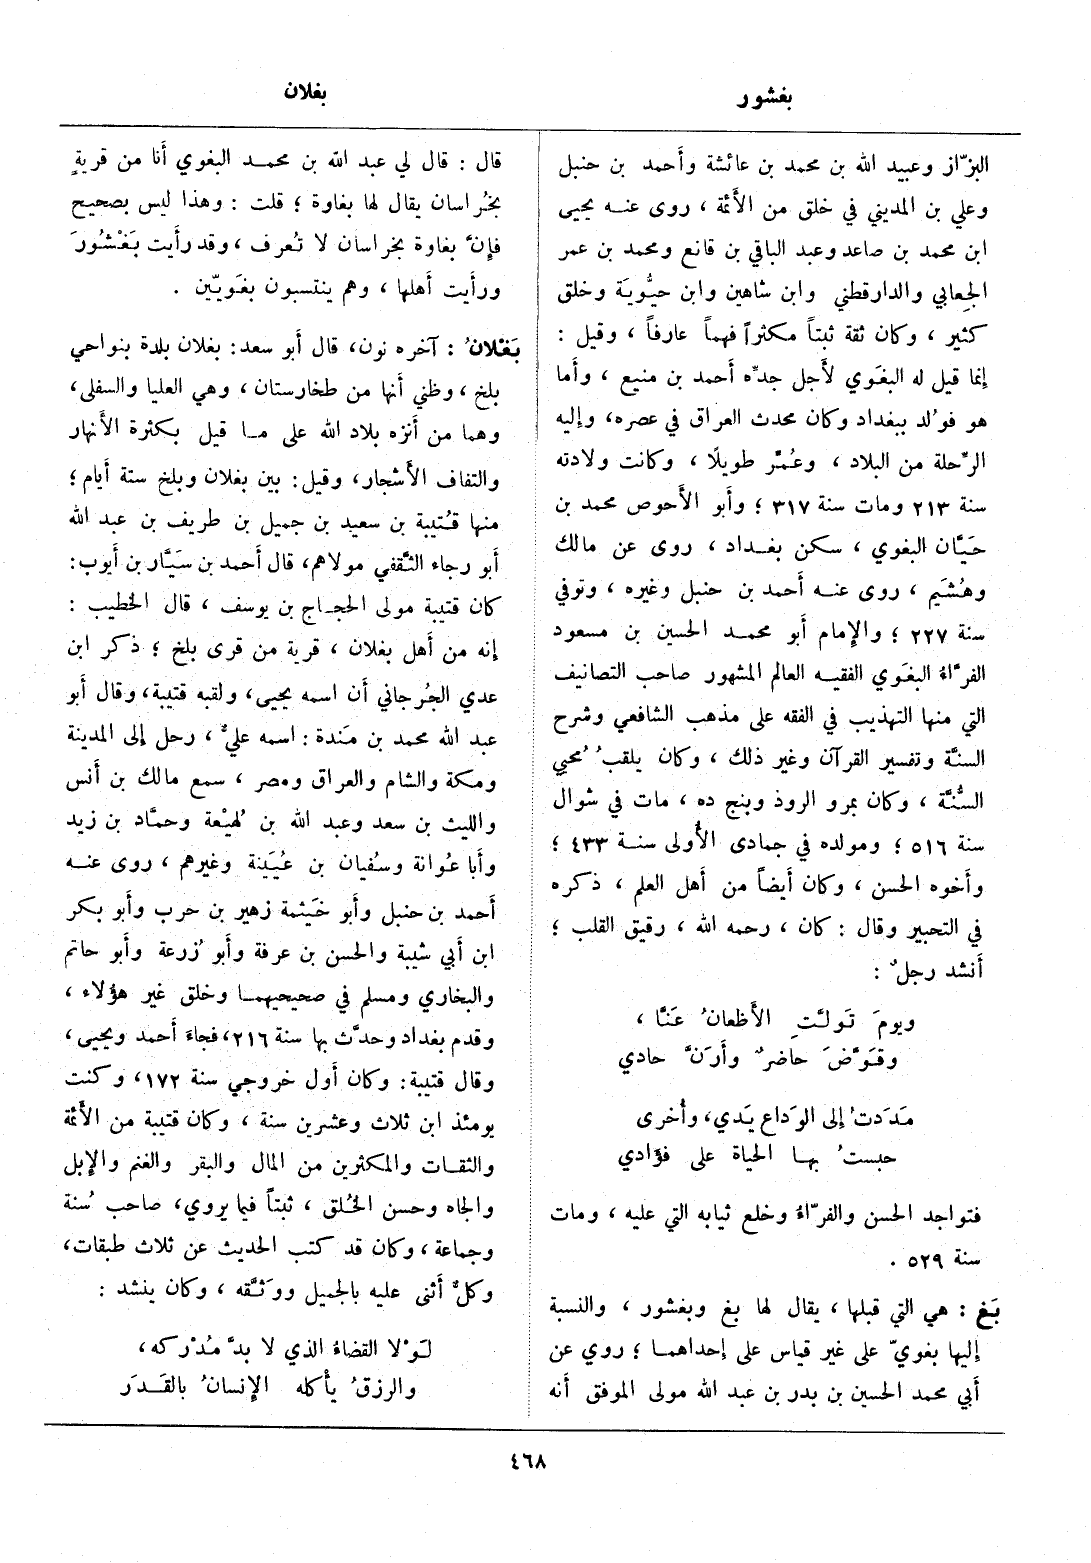 بغشور
بغلان
البزّاز وعبيد الله بن محمد بن عائشة وأحمد بن حنبل
وعلي بن المديني في خلق من الأئمة ، روى عنه يحيى
ابن محمد بن صاعد وعبد الباقي بن قانع ومحمد بن عمر
الجِعابي والدارقطني وابن شاهين وابن حيُّويَة وخلق
كثير ، وكان ثقة ثبتاً مكثراً فهماً عارفاً ، وقيل :
إنما قيل له البغَوي لأجل جدّه أحمد بن منيع ، وأما
هو فوُلد ببغداد وكان محدث العراق في عصره، وإليه
الرّحلة من البلاد ، وعُمّر طويلًا ، وكانت ولادته
سنة ٢١٣ ومات سنة ٣١٧ ؛ وأبو الأحوص محمد بن
حَيَّان البغوي ، سكن بغداد ، روى عن مالك
وهُشَيم ، روى عنه أحمد بن حنبل وغيره ، وتوفي
سنة ٢٢٧ ؛ والإمام أبو محمد الحسين بن مسعود
الفرّاءُ البغَوي الفقيه العالم المشهور صاحب التصانيف
التي منها التهذيب في الفقه على مذهب الشافعي وشرح
السنَّة وتفسير القرآن وغير ذلك ، وكان يلقبُ مُحيي
السُّنَّة ، وكان بمرو الروذ وبنج ده ، مات في شوال
سنة ٥١٦ ؛ ومولده في جمادى الأُولى سنة ٤٣٣ ؛
وأخوه الحسن ، وكان أيضاً من أهل العلم ، ذكره
في التحبير وقال : كان ، رحمه الله ، رقيق القلب ؛
أنشد رجلٌ :
ويومَ تَولَّتِ الأَظعانُ عَنَّا ،
وقَوَّضَ حاضرٌ وأرَنَّ حادي
مَدَدتُ إلى الوَداع يَدي، وأُخرى
حبستُ بها الحياة على فؤادي
فتواجد الحسن والفرّاءُ وخلع ثيابه التي عليه ، ومات
سنة ٥٢٩ .
بَغ : هي التي قبلها ، يقال لها بغ وبغشور ، والنسبة
إليها بغويّ على غير قياس على إحداهما ؛ روي عن
أبي محمد الحسين بن بدر بن عبد الله مولى الموفق أنه
قال : قال لي عبد الله بن محمد البغوي أنا من قريةٍ
بخُراسان يقال لها بغاوة ؛ قلت : وهذا ليس بصحيح
فإنَّ بغاوة بخراسان لا تُعرف ، وقد رأيت بَغْشُورَ
ورأيت أهلها ، وهم ينتسبون بغَويّين .
بَغْلانُ : آخره نون، قال أبو سعد: بغلان بلدة بنواحي
بلخ ، وظني أنها من طخارستان ، وهي العليا والسفلى،
وهما من أنزه بلاد الله على ما قيل بكثرة الأنهار
والتفاف الأشجار، وقيل: بين بغلان وبلخ ستة أيام ؛
منها قُتيبة بن سعيد بن جميل بن طريف بن عبد الله
أبو رجاء الثَّقفي مولاهم، قال أحمد بن سَيَّار بن أيوب:
كان قتيبة مولى الحجاج بن يوسف ، قال الخطيب :
إنه من أهل بغلان ، قرية من قرى بلخ ؛ ذكر ابن
عدي الجُرجاني أن اسمه يحيى، ولقبه قتيبة، وقال أبو
عبد الله محمد بن مَندة : اسمه عليٌّ ، رحل إلى المدينة
ومكة والشام والعراق ومصر ، سمع مالك بن أنس
والليث بن سعد وعبد الله بن لَهيْعة وحمَّاد بن زيد
وأبا عوانة وسُفيان بن عُيَينة وغيرهم ، روى عنه
أحمد بن حنبل وأبو خَيثمة زهير بن حرب وأبو بكر
ابن أبي شيبة والحسن بن عرفة وأبو زُرعة وأبو حاتم
والبخاري ومسلم في صحيحيهما وخلق غير هؤلاء ،
وقدم بغداد وحدَّث بها سنة ٢١٦، فجاءَ أحمد ويحيى،
وقال قتيبة: وكان أول خروجي سنة ١٧٢، وكنت
يومئذ ابن ثلاث وعشرين سنة ، وكان قتيبة من الأئمة
والثقات والمكثرين من المال والبقر والغنم والإبل
والجاه وحسن الخُلق ، ثبتاً فيما يروي، صاحب سُنة
وجماعة ، وكان قد كتب الحديث عن ثلاث طبقات،
وكلٌّ أثنى عليه بالجميل ووَثَّقه ، وكان ينشد :
لَوْلا القضاءُ الذي لا بدَّ مُدْركه ،
والرزقُ يأكله الإنسانُ بالقَدَر
٤٦٨